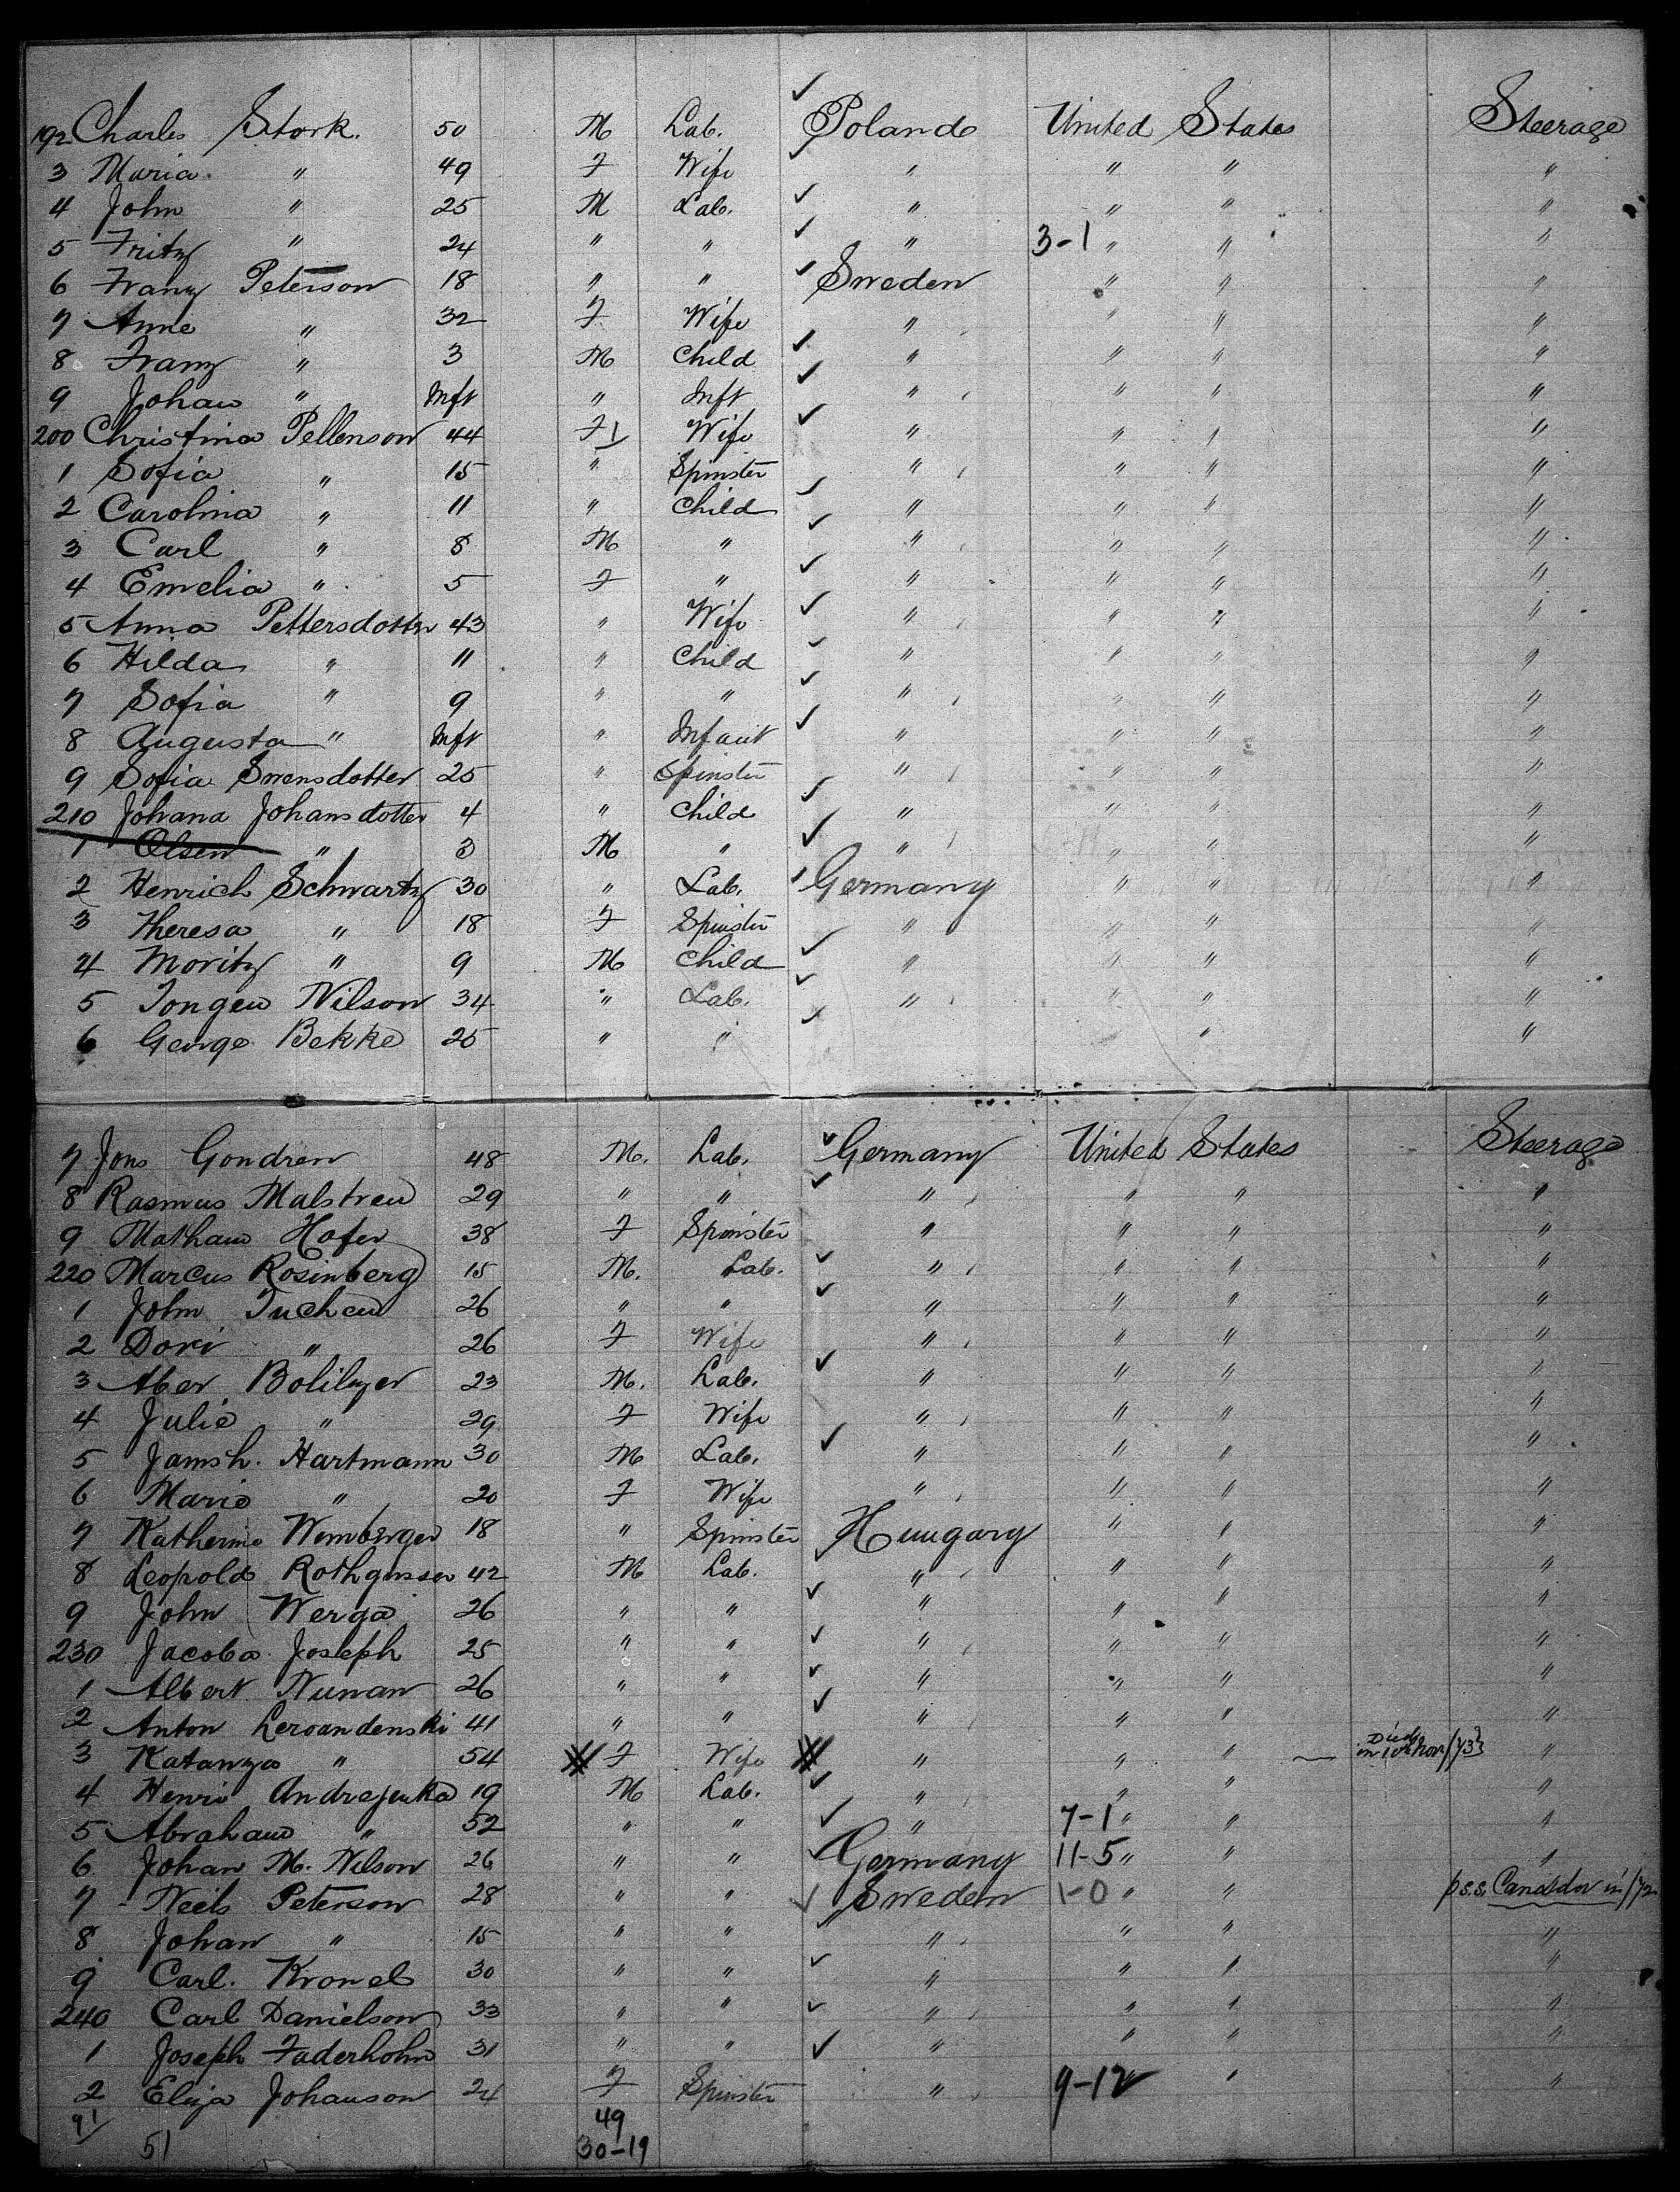 192 Charles Stork. 50 M Lab. ✓ Poland United States Steerage
3 Maria " 49 F Wife ✓ " " " "
4 John " 25 M Lab. ✓ " " " "
5 Fritz " 24 " " ✓ " 3-1 " " "
6 Franz Peterson 18 " " ✓ Sweden " " "
7 Anne " 32 F Wife " " " "
8 Franz " 3 M Child ✓ " " " "
9 Johan " Inft " Inft ✓ " " " "
200 Christina Pellenson 44 F 1 Wife ✓ " " " "
1 Sofia " 15 " Spinster " " " "
2 Carolina " 11 " Child ✓ " " " "
3 Carl " 8 M " ✓ " " " "
4 Emelia " 5 F " ✓ " " " "
5 Anna Pettersdotter 43 " Wife ✓ " " " "
6 Hilda " 11 " Child ✓ " " " "
7 Sofia " 9 " " ✓ " " " "
8 Augusta " Inft " Infant ✓ " " " "
9 Sofia Swensdotter 25 " Spinster " " " "
210 Johana Johansdotter 4 " Child ✓ " " " "
1 Olsen " 3 M " ✓ " " " "
2 Henrich Schwartz 30 " Lab. ✓ Germany " " "
3 Theresa " 18 F Spinster " " " "
4 Moritz " 9 M Child ✓ " " " "
5 Nilson 34 " Lab. ✓ " " " "
6 George Bekke 25 " " " "
7 Jons Gondren 48 M. Lab. ✓ Germany United States Steerage
8 Rasmus Malstren 29 " " ✓ " " " "
9 Mathaus Hofer 38 F Spinster " " " "
220 Marcus Rosinberg 15 M. Lab. ✓ " " " "
1 John Tuchen 26 " " ✓ " " " "
2 Dori " 26 F Wife " " " "
3 Aber 23 M. Lab. ✓ " " " "
4 Julie " 29 F Wife " " " "
5 Jamsh. Hartmann 30 M Lab. ✓ " " " "
6 Marie " 20 F Wife " " " "
7 Katherine 18 " Spinster Hungary " " "
8 Leopold 42 M Lab. ✓ " " " "
9 John Werga 26 " " ✓ " " " "
230 Jacoba Joseph 25 " " ✓ " " " "
1 Albert Nunan 26 " " ✓ " " " "
2 Anton Leroandenski 41 " " ✓ " " " "
3 Katanza " 54 F Wife " " " Died in 10th Nov/73 "
4 Henri Andrejenka 19 M Lab. ✓ " " " "
5 Abraham " 52 " " ✓ " 7-1 " " "
6 Johan M. Nilson 26 " " ✓ Germany 11-5 " " "
7 Neils Peterson 28 " " ✓ Sweden 1-0 " " p s.s. in/72
8 Johan " 15 " " ✓ " " " "
9 Carl. Kronels 30 " " ✓ " " " "
240 Carl Danielson 33 " " ✓ " " " "
1 Joseph Faderholm 31 " " ✓ " " " "
2 Eliza Johanson 24 F Spinster " 9-12 " "
91 51 49
30-19